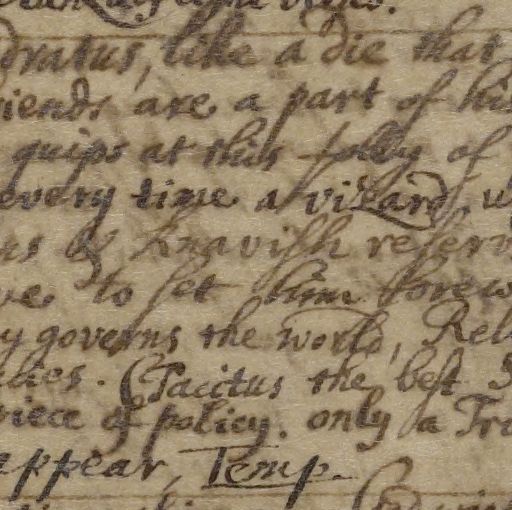 dratus, like a die that
iends are a part of his
quips at this folly of
every time a vizard, w
ts by knavish reserv
ve to set him forew
y governs the world, Rel
ities. Tacitus the best S
piece of policy. only a Tra
appear, Temp.